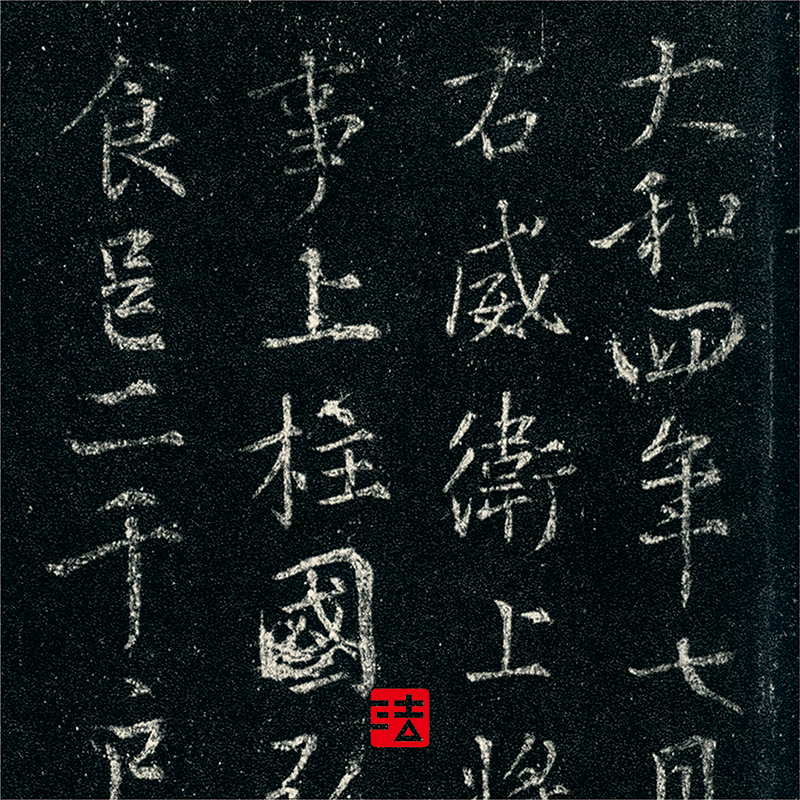 大和四年七月
右威衛上將
事上柱國
食邑二千戶
法